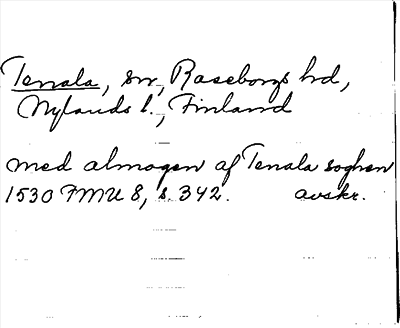 Tenala, sn, Raseborgs hd,
Nylands l., Finland
med almogen af Tenala soghen
1530 FMU 8, s. 342. avskr.